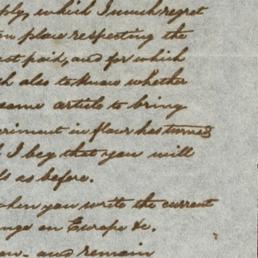 ply, which I much regret
en place respecting the
est paid, and for which
ch also to know whether
same article to bring
eriment in flour has turned
d I beg that you will
ls as before.
when you write the current
ange on Europe &c.
ew - and remain